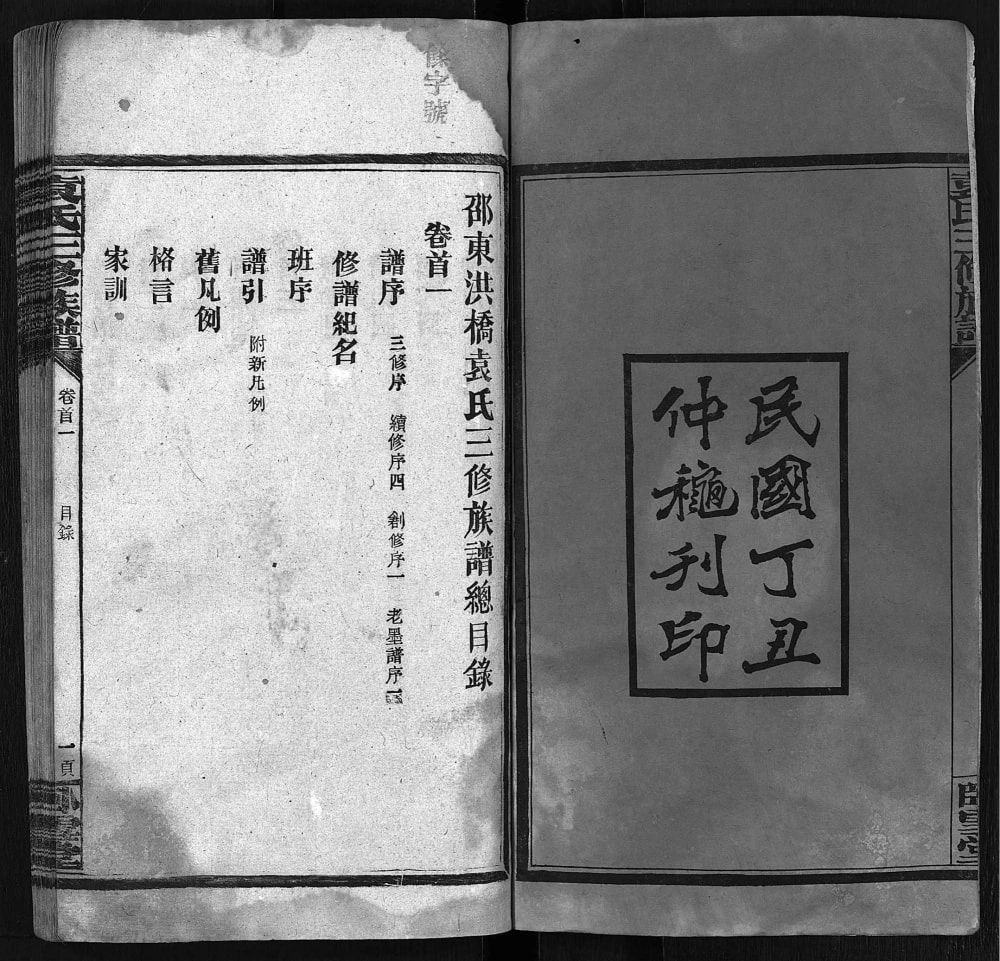 民國丁丑
仲龝刊印
袁氏三修族譜
字號
邵東洪橋袁氏三修族譜總目錄
卷首一
譜序 三修序 續修序四 創修序一 老墨譜序
修譜紀名
班序
譜引 附新凡例
舊凡例
格言
家訓
袁氏三修族譜
卷首一
目錄
一頁